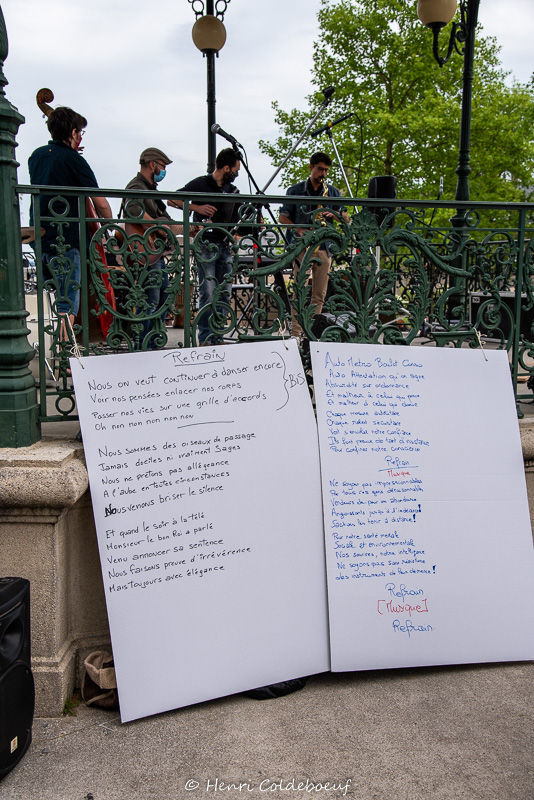 Refrain
Nous on veut continuer à danser encore
Voir nos pensées enlacer nos corps
Passer nos vies sur une grille d'accords
Oh non non non non non
Bis
Nous sommes des oiseaux de passage
Jamais dociles ni vraiment sages
Nous ne prêtons pas allégeance
A l'aube en toutes circonstances
Nous venons briser le silence
Et quand le soir à la télé
Monsieur le bon Roi a parlé
Venu annoncer sa sentence
Nous faisons preuve d'irrévérence
Mais toujours avec élégance
Auto Metro Boulot Conso
Auto Attestation qu'on signe
Absurdité sur ordonnance
Et malheur à celui qui pense
Et malheur à celui qui danse
Chaque mesure autoritaire
Chaque relent sécuritaire
Voit s'envoler notre confiance
Ils font preuve de tant d'insistance
Pour confiner notre conscience
Refrain
Musique
Ne soyons pas impressionnables
Par tous ces gens déraisonnables
Vendeurs de peur en abondance
Angoissants jusqu'à l'indécence!
Sachons les tenir à distance!
Pour notre santé mentale
Sociale et environnementale
Nos sourires, notre intelligence
Ne soyons pas sans résistance
des instruments de leur démence!
Refrain
[Musique]
Refrain
© Henri Coldeboeuf